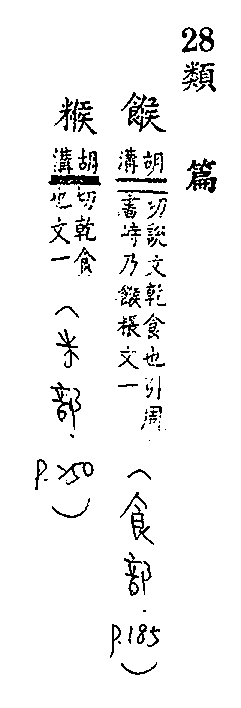 28 類篇
餱 胡溝切說文乾食也引周書峙乃餱粻文一(食部.p.185)
糇 胡溝切乾食也文一(米部.p.250)